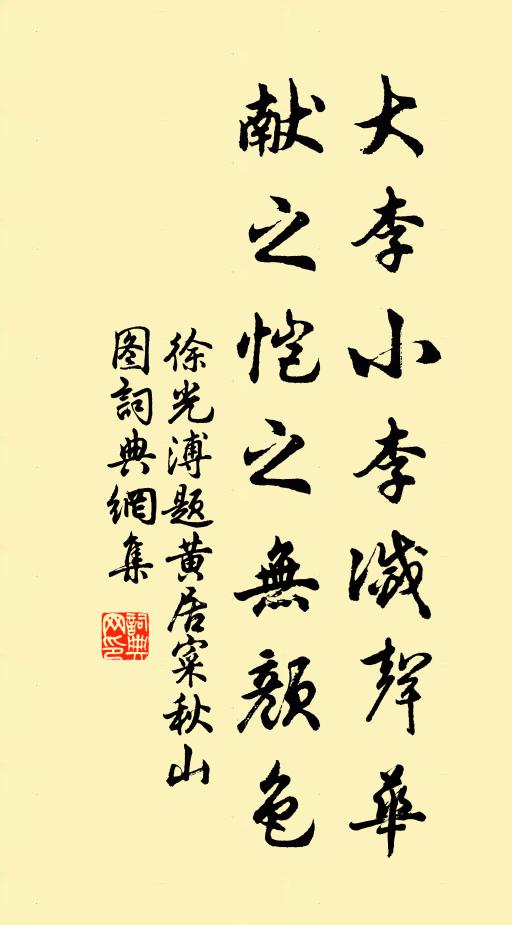 大李小李滅聲華
献之愷之無顏色
徐光溥题黄居寀秋山
图詞典網集
詞典网印